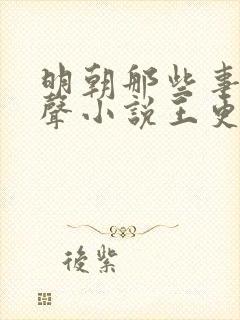 明朝那些事
聲小說王更
後紫